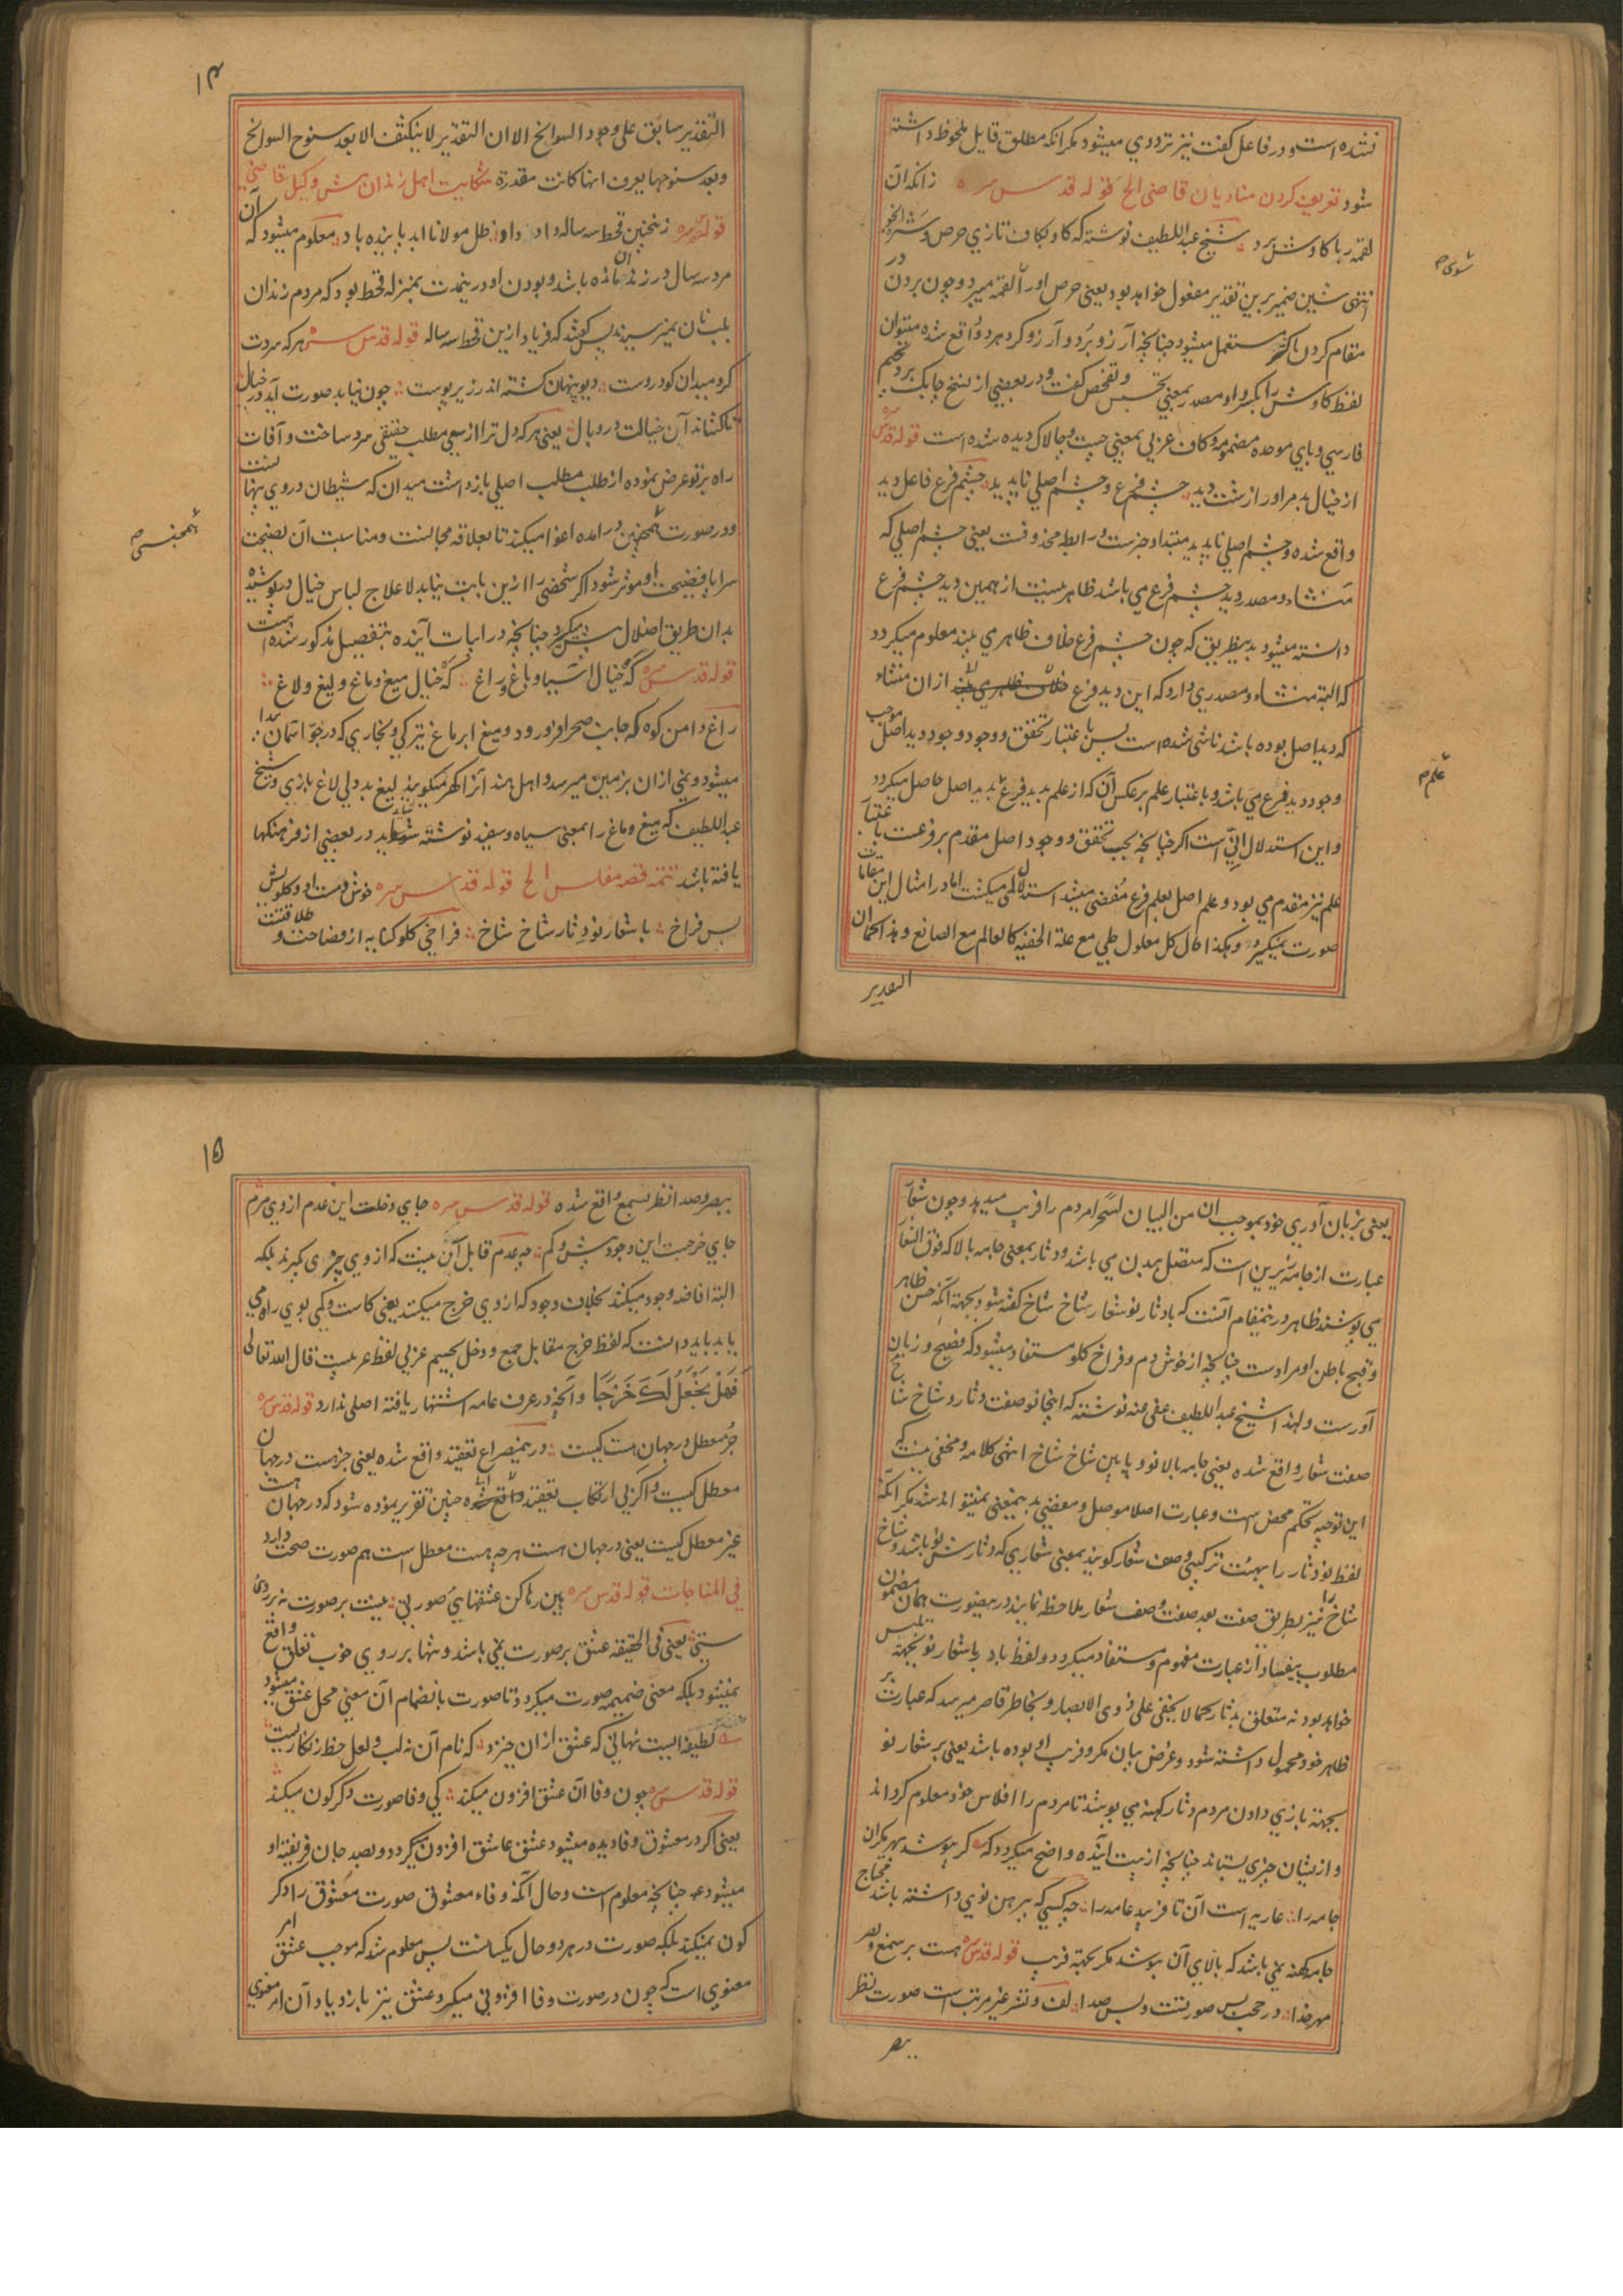 نشده است و در فاعل کفت نیز ترددی میشود مکر انکه مطلق قایل ملحوظ داشته
شود تعریف کردن منادیان قاضی الخ قوله قدس سره زانکه آن
لقمه ربا کاوش برد شیخ عبد اللطیف نوشته که کاو بکاف تازی حرص و شره الخ
انتهی شین ضمیر برین تقدیر مفعول خواهد بود یعنی حرص او را القمه میبرد و چون بردن در
مقام کردن اکثر مستعمل میشود چنانچه آرزو برد و آرزو کرد هر دو واقع شده میتوان
لفظ کاوش را بکسر واو مصدر بمعنی تجسس و تفحص کفت و در بعضی از نسخ چابک برد بجیم
فارسی و بای موحده مضمومه و کاف عربی بمعنی چست و چالاک دیده شده است قوله قدس سره
از خیال بد مر او را زشت دید چشم فرع و چشم اصلی ناپدید چشم فرع فاعل دید
واقع شده و چشم اصلی ناپدید مبتدا و خبرست و رابطه محذوفست یعنی چشم اصلی که
منشاء و مصدر دید چشم فرع می باشد ظاهر نیست از همین دید چشم فرع
دانسته میشود بدینطریق که چون چشم فرع خلاف ظاهر می بیند معلوم میکردد
که البته منشاء و مصدری دارد که این دید فرع از ان منشاء
که دید اصل بوده باشد ناشی شده است پس باعتبار تحقق و وجود وجود دید اصل موجب
وجود دید فرع می باشد و باعتبار علم بر عکس آن که از علم بدید فرع علم بدید اصل حاصل میکردد
و این استدلال انّی است اکر چنانچه بحسب تحقق و وجود اصل مقدم بر فرعست باعتبار
علم نیز مقدم می بود و علم اصل بعلم فرع مفضی میشد استدلال لمی میکشت اما در امثال این مقامات
صورت نمیکیرد و هکذا حال کل معلول جلی مع علة الخفیه کالعالم مع الصانع و هذا کما ان
التقدیر
شوی
علم
۱۴
التقدیر سابق علی وجود السوانح الا ان التقدیر لا ینکشف الا بعد سنوح السوانح
و بعد سنوحها یعرف انها کانت مقدرة شکایت اهل زندان پیش وکیل قاضی
قوله قدس سره زنچنین قحط سه ساله داد داد ظل مولانا ابد پاینده باد معلوم میشود که آن
مرد سه سال در زندان مانده باشد و بودن او در ینمدت بمنزله قحط بود که مردم زندان
بلب نان نمیرسیدند پس کفتند که فریاد ازین قحط سه ساله قوله قدس سره هر که سردت
کرد میدان کو دروست دیو پنهان کشته اندر زیر پوست چون نیابد صورت آید در خیال
تا کشاند آن خیالت در وبال یعنی هر که دل ترا از سعی مطلب حقیقی سرد ساخت و آفات
راه بر تو عرض نموده از طلب مطلب اصلی باز داشت میدان که شیطان در وی پنهانست
و در صورت همچنین در امده اغوا میکند تا بعلاقه مجالست و مناسبت آن نصیحت
سراپا فضیحت او موثر شود اکر شخصی را ازین بابت نیابد لا علاج لباس خیال در پوشیده
بدان طریق اضلال پیش میکیرد چنانچه در ابیات آینده بتفصیل مذکور شده است
قوله قدس سره که خیال آسیا و باغ و راغ که خیال میغ و ماغ و لیغ و لاغ
راغ دامن کوه که جانب صحرا فرورود و میغ ابر ماغ تیرکی و بخاری که در جو آسمان پیدا
میشود و نمی از ان بر زمین میرسد و اهل هند انرا کهر میکویند لیغ بد دلی لاغ بازی و شیخ
عبد اللطیف که میغ و ماغ را بمعنی سیاه و سفید نوشته شاید در بعضی از فرهنکها
یافته باشد تتمه قصه مفلس الخ قوله قدس سره خوش دمست او و کلویش
بس فراخ با شعار نو دثار شاخ شاخ فراخی کلو کنایه از فصاحت و طلاقتست
همجنسی
یعنی بزبان آوری خود بموجب ان من البیان لسحرا مردم را فریب میدهد و چون شعار
عبارت از جامهٔ زیرین است که متصل ببدن می باشد و دثار بمعنی جامه بالا که فوق الشعار
می پوشند ظاهر در ینمقام آنست که با دثار نو شعار شاخ شاخ کفته شود بجهته آنکه حسن ظاهر
و قبح باطن او مرادست چنانچه از خوش دم و فراخ کلو مستفاد میشود که فصیح و زبان
آورست و لهذا شیخ عبد اللطیف عفی عنه نوشته که اینجا نو صفت دثار و شاخ شاخ
صفت شعار واقع شده یعنی جامه بالا نو و پایین شاخ شاخ انتهی کلامه و مخفی نیست که
این توجیه تحکم محض است و عبارت اصلا موصل و مفضی بدینمعنی نمیتواند شد مکر آنکه
لفظ نو دثار را بهیئت ترکیبی وصف شعار کویند بمعنی شعاری که دثارش نو باشد و شاخ
شاخ را نیز بطریق صفت بعد صفت وصف شعار ملاحظه نمایند در ینصورت همان مضمون
مطلوب بیفساد از عبارت مفهوم و مستفاد میکردد و لفظ باد با شعار نو بجهته تلبیس
خواهد بود نه متعلق بدثار کما لا یخفی علی ذوی الابصار و بخاطر قاصر میرسد که عبارت بر
ظاهر خود محمول داشته شود و غرض بیان مکر و فریب او بوده باشد یعنی بر شعار نو
بجهته بازی دادن مردم دثار کهنه می پوشد تا مردم را افلاس خود معلوم کرداند
و از یشان چیزی بستاند چنانچه از بیت آینده واضح میکردد که کر بپوشد بهر مکر آن
جامه را عاریه است آن تا فریبد عامه را چه کسی که پیرهن نوی داشته باشد محتاج
جامه کهنه نمی باشد که بالای آن بپوشد مکر بجهته فریب قوله قدس سره هست بر سمع و بصر
مهر خدا در حجب بس صورتست و بس صدا لف و نشر غیر مرتب است صورت نظر
ببصر
۱۵
ببصر و صدا نظر بسمع واقع شده قوله قدس سره جای دخلت این عدم از وی مرم
جای خرجست این وجود بیش و کم چه عدم قابل آن نیست که از وی چیزی کیرند بلکه
البته افاضه وجود میکند بخلاف وجود که از وی خرج میکنند یعنی کاست و کمی بوی راه می
یابد باید دانست که لفظ خرج مقابل جمع و دخل بجیم عربی لفظ عربیست قال الله تعالی
فَهَلْ نَجْعَلُ لَكَ خَرْجًا و آنچه در عرف عامه اشتهار یافته اصلی ندارد قوله قدس سره
جز معطل در جهان هست کیست در ینمصراع تعقید واقع شده یعنی جز هست در جهان
معطل کیست و اکر بی ارتکاب تعقید چنین تقریر نموده شود که در جهان هست
غیر معطل کیست یعنی در جهان هست هر چه هست معطل است هم صورت صحت دارد
فی المناجات قوله قدس سره بین رها کن عشقهای صورتی نیست بر صورت نه بر روی
ستی یعنی فی الحقیقه عشق بر صورت نمی باشد و تنها بر روی خوب تعلق واقع
نمیشود بلکه معنی ضمیمه صورت میکردد تا صورت بانضمام آن معنی محل عشق میشود
لطیفه ایست نهانی که عشق ازان خیزد که نام آن نه لب و لعل خط زنکاریست
قوله قدس سره چون وفا آن عشق افزون میکند کی وفا صورت دکرکون میکند
یعنی اکر در معشوق وفا دیده میشود عشق عاشق افزون میکردد و بصد جان فریفتهٔ او
میشود چنانچه معلوم است و حال آنکه وفاء معشوق صورت معشوق را دکر
کون نمیکند بلکه صورت در هر دو حال یکسانست پس معلوم شد که موجب عشق امر
معنوی است که چون در صورت وفا افزونی میکیرد عشق نیز بازدیاد آن امر معنوی